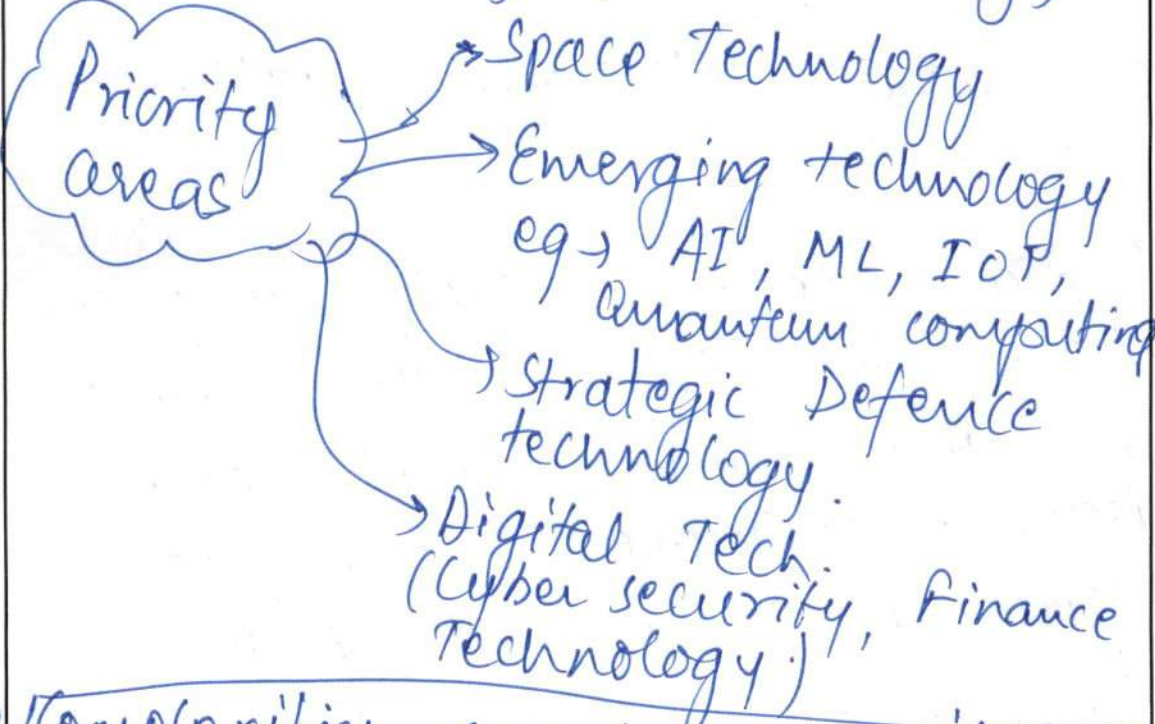 Priority
areas
Space Technology
Emerging technology
eg → AI, ML, IoT,
Quantum computing
Strategic Defence
technology.
Digital Tech.
(Cyber security, Finance
Technology.)